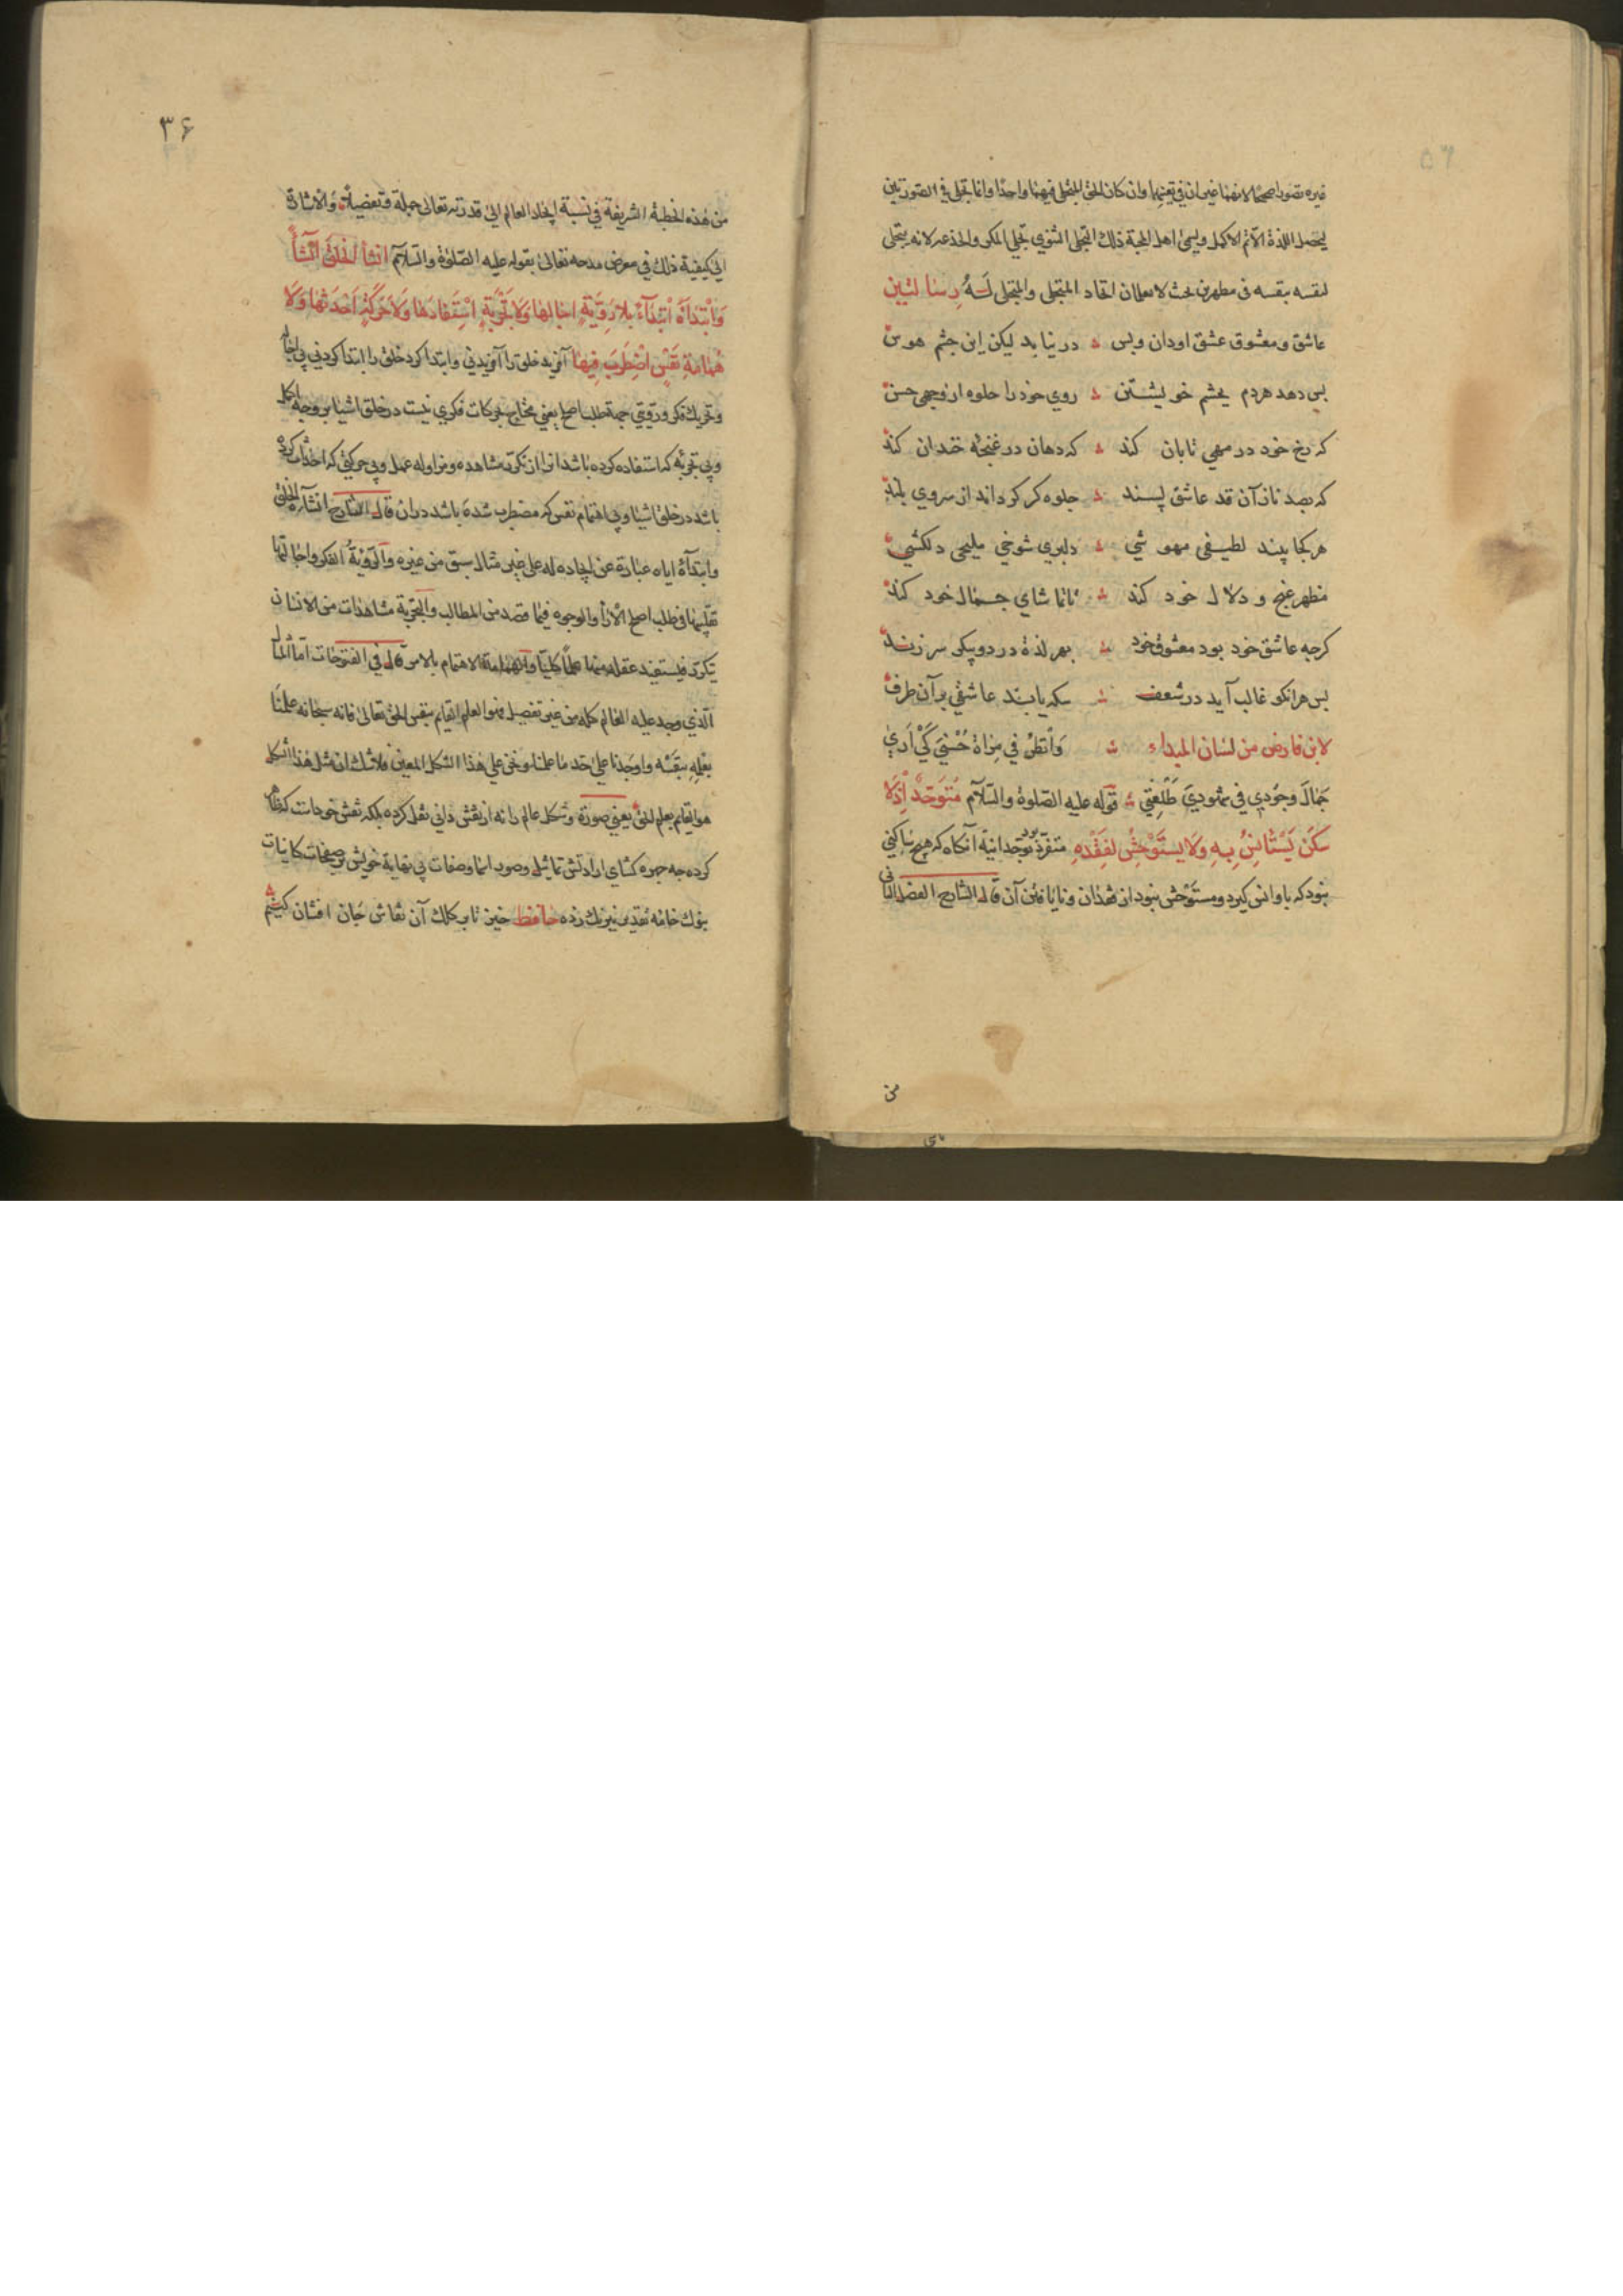 غیره تصورا صحیحا لانهما غیران فی تعینهما وان کان الحق المتجلی فیهما واحدا وانما تجلی فی الصورتین
لیحصل اللذة الاتم الاکمل ویسمی اهل المحبة ذلک التجلی الثنوی تجلی المکر والخدعه لانه یتجلی
لنفسه بنفسه فی مظهرین بحیث لا یعلمان اتحاد المتجلی والمتجلی له
عاشق ومعشوق عشق اودان وبس ؞ در نیابد لیکن این چشم هوس
بس دهد هردم بچشم خویشتن ؞ روی خود را جلوه از وجهی حسن
که رخ خود در مهی تابان کند ؞ که دهان در غنچه خندان کند
که بصد ناز آن قد عاشق پسند ؞ جلوه کر کرداند از سروی بلند
هر کجا بیند لطیفی مهوشی ؞ دلبری شوخی ملیحی دلکشی
مظهر غنج و دلال خود کند ؞ تا تماشای جمال خود کند
کرچه عاشق خود بود معشوق خود ؞ بهر لذة در دو پیکر سر زند
بس هر انکو غالب آید در شعف ؞ سکه یابند عاشقی بر آن طرف
لابن فارض من لسان المبداء ؞ وَانظُرْ فی مِرْاةِ حُسْنِیَ کَیْ اَرَیٰ
جَمَالَ وجُودِی فی شُهودِیَ طَلْعَتِی ؞ قوله علیه الصلوة والسلام مُتَوَحِّدٌ اِذْ لَا
سَکَنَ یَسْتَأنِسُ بِهِ وَلَا یَستَوْحِشُ لِفَقْدِهِ متفرد بود بوحدانیة آنکاه که هیچ ساکنی
نبود که باو انس کیرد ومستوحش نبود از فقدان ونایافتن آن قال الشارح الفصل الثانی
من
۳۶
من هذه الخطبة الشریفة فی نسبة ایجاد العالم الی قدرته تعالی جملة وتفصیلا والاشارة
الی کیفیة ذلک فی معرض مدحه تعالی بقوله علیه الصلوة والسلام انشأ الخلق انشاءً
وَابْتَدَأَهُ اْبْتِدَآءً بِلَا رَوِیَّةٍ اجالها وَلَا تَجْرِبَةٍ اسْتَفَادَهَا وَلَا حَرَکَةٍ اَحْدَثَهَا وَلَا
هَمَامَةِ نَفْسٍ اضْطَرَبَ فِیهَا آفرید خلق را آفریدنی وابتدا کرد خلق را ابتدا کردنی بی اجاله
وتحریک فکر ورویتی جهة طلب اصلح یعنی محتاج بحرکات فکری نیست در خلق اشیا بر وجه اکمل
وبی تجربه که استفاده کرده باشد انرا از تکرر مشاهده ومزاوله عمل وبی حرکتی که احداث کرده
باشد در خلق اشیا وبی اهتمام نفس که مضطرب شده باشد دران قال الشارح انشآء الخلق
وابتدآءه ایاه عبارة عن ایجاده له علی غیر مثال سبق من غیره والرَوِیَّةُ الفکر واجالتها
تقلیبها فی طلب اصلح الآراء والوجوه فیما قصد من المطالب والتجربة مشاهدات من الانسان
تتکرر فیستفید عقله منها علما کلیا والهمامة الاهتمام بالامر قال فی الفتوحات اما المثال
الذی وجد علیه العالم کله من غیر تفصیل فهو العلم القایم بنفس الحق تعالی فانه سبحانه علمنا
بعلمه بنفسه واوجدنا علی حد ما علمنا ونحن علی هذا الشکل المعین فلا شک ان مثل هذا الشکل
هو القایم بعلم الحق یعنی صورة وشکل عالم را نه از نقش دانی نقل کرده بلکه نقش خود است کماکان
کرده چه چهره کشای ارادتش تماثیل وصور اسما وصفات بی نهایة خویش بر صفحات کاینات
بنوک خامه تقدیر نیرنک زده حافظ خیز تا بر کلک آن نقاش جان افشان کنیم